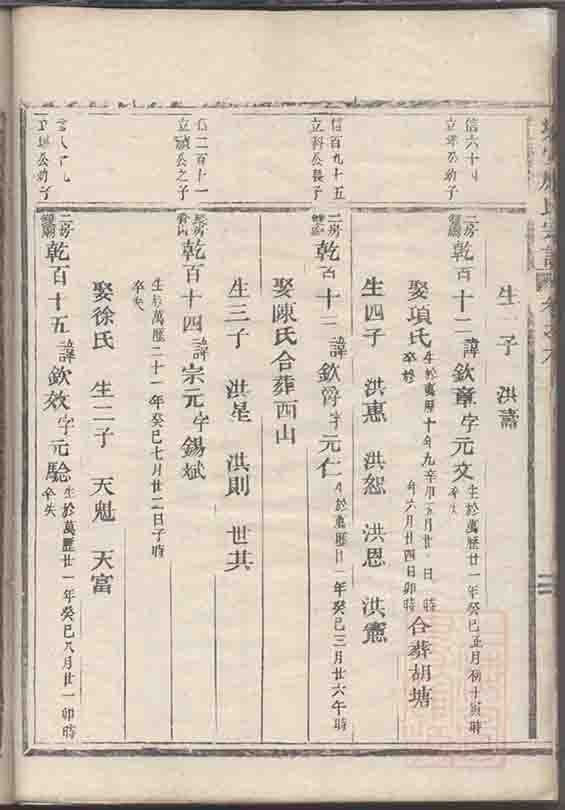 生 子 洪壽
信六十
立 公幼子
二房
乾百十二 諱欽章字元文 生於萬歷廿一年癸巳五月初十寅時
卒失
娶項氏 生於萬歷十 年 月廿 日 時
卒於 年六月廿四日卯時 合葬胡塘
生四子 洪惠 洪恕 洪恩 洪憲
信百九十五
立科公長子
二房
乾百十三 諱欽爵字元仁 生於萬歷廿一年癸巳三月廿六午時
娶陳氏合葬西山
生三子 洪星 洪則 世共
信二百十一
立 公之子
房
乾百十四 諱宗元字錫斌
生於萬歷二十一年癸巳七月廿二日子時
卒失
娶徐氏 生二子 天魁 天富
立 公幼子
二房
乾百十五 諱欽效字元騐 生於萬歷廿一年癸巳八月廿一卯時
卒失